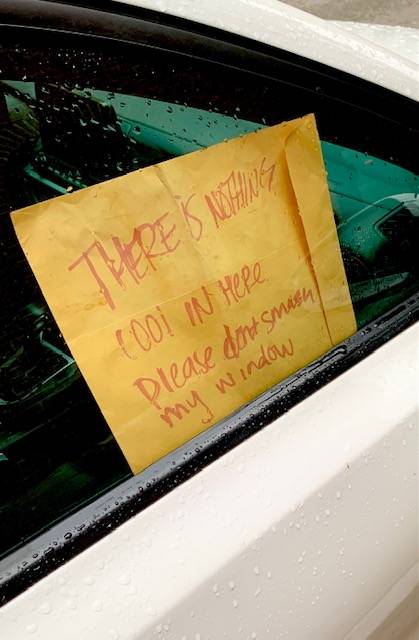 THERE IS NOTHING
COOl IN HERE
please dont smash
my window